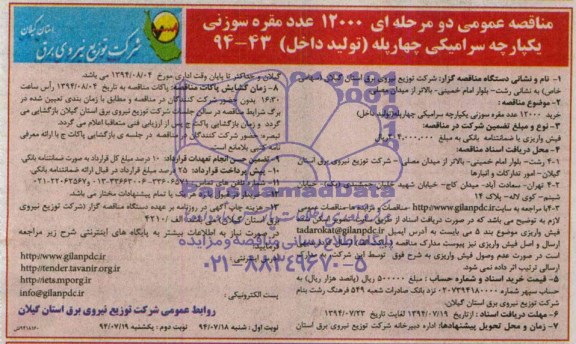 مناقصه عمومی دو مرحله ای ۱۲۰۰۰ عدد مقره سوزنی
یکپارچه سرامیکی چهارپله (تولید داخل) ۴۳-۹۴
استان گیلان
شرکت توزیع نیروی برق
۱- نام و نشانی دستگاه مناقصه گزار: شرکت توزیع نیروی برق استان گیلان (سهامی
خاص) به نشانی رشت- بلوار امام خمینی- بالاتر از میدان مصلی
۲- موضوع مناقصه:
خرید ۱۲۰۰۰ عدد مقره سوزنی یکپارچه سرامیکی چهارپله (تولید داخل)
۳- نوع و مبلغ تضمین شرکت در مناقصه:
فیش واریزی یا ضمانتنامه بانکی به مبلغ
۴- محل دریافت اسناد مناقصه:
۴-۱ رشت- بلوار امام خمینی- بالاتر از میدان مصلی - شرکت توزیع نیروی برق استان
گیلان- امور تدارکات و انبارها
۴-۲ تهران- سعادت آباد- میدان کاج- خیابان شهید
شبنم- کوی لاله- پلاک ۱۴
۴-۳ مراجعه به سایت http://www.gilanpdc.ir
لازم به توضیح می باشد که در صورت دریافت اسناد از طریق سایت
فیش واریزی موضوع بند ۵ می بایست به آدرس ایمیل tadarokat@gilanpdc.ir
ارسال و اصل فیش واریزی نیز پیوست مدارک مناقصه
است در صورت عدم وصول فیش واریزی به شرح فوق توسط این شرکت، به
ارسالی ترتیب اثر داده نمی شود.
۵- قیمت خرید اسناد و شماره حساب: مبلغ ۵۰۰۰۰۰ ریال (پانصد هزار ریال) به
حساب سپهر شماره ۰۲۰۷۳۹۴۱۸۰۰۰۱ نزد بانک صادرات شعبه ۵۴۹ فرهنگ رشت بنام
شرکت توزیع نیروی برق استان گیلان.
۶- مهلت دریافت اسناد: از تاریخ ۱۳۹۴/۰۷/۱۹ لغایت تاریخ ۱۳۹۴/۰۷/۲۳
۷- زمان و محل تحویل پیشنهادها: اداره دبیرخانه شرکت توزیع نیروی برق استان
گیلان و حداکثر تا پایان وقت اداری مورخ ۱۳۹۴/۰۸/۰۴ می باشد.
۸- زمان گشایش پاکات مناقصه: پاکات مناقصه به تاریخ ۱۳۹۴/۰۸/۰۴ رأس ساعت
۱۶:۳۰ بدون حضور شرکت کنندگان در مناقصه و مطابق با زمان بندی تعیین شده در
برگ شرایط مناقصه در سالن جلسات شرکت توزیع نیروی برق استان گیلان بازگشایی می
گردد و زمان بازگشایی پاکت ج پس از ارزیابی فنی متعاقبا اعلام می گردد.
تبصره: حضور شرکت کنندگان در مناقصه در جلسه ی بازگشایی پاکات ج با ارائه معرفی
نامه کتبی بلامانع است.
۹- تضمین حسن انجام تعهدات قرارداد: ۱۰ درصد مبلغ کل قرارداد به صورت ضمانتنامه بانکی.
۱۰- پیش پرداخت قرارداد: ۲۵ درصد مبلغ قرارداد در قبال ارائه ضمانتنامه بانکی.
ParsNamadData
پایگاه اطلاع رسانی مناقصه و مزایده
۰۲۱-۸۸۳۴۹۶۷۰-۵
در صورت نیاز به اطلاعات بیشتر به پایگاه های اینترنتی شرح زیر مراجعه
http://www.gilanpdc.ir
http://tender.tavanir.org.ir
http://iets.mporg.ir
پست الکترونیکی: info@gilanpdc.ir
روابط عمومی شرکت توزیع نیروی برق استان گیلان
نوبت اول: شنبه ۹۴/۰۷/۱۸ نوبت دوم: یکشنبه ۹۴/۰۷/۱۹